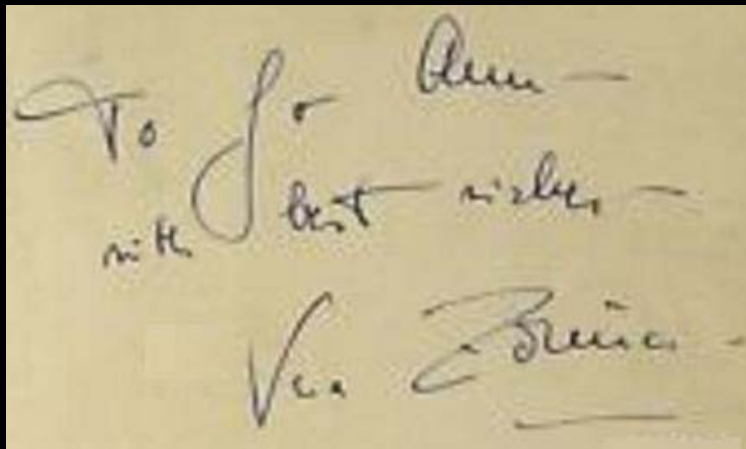 To Jo Ann —
with best wishes —
Vera Zorina —